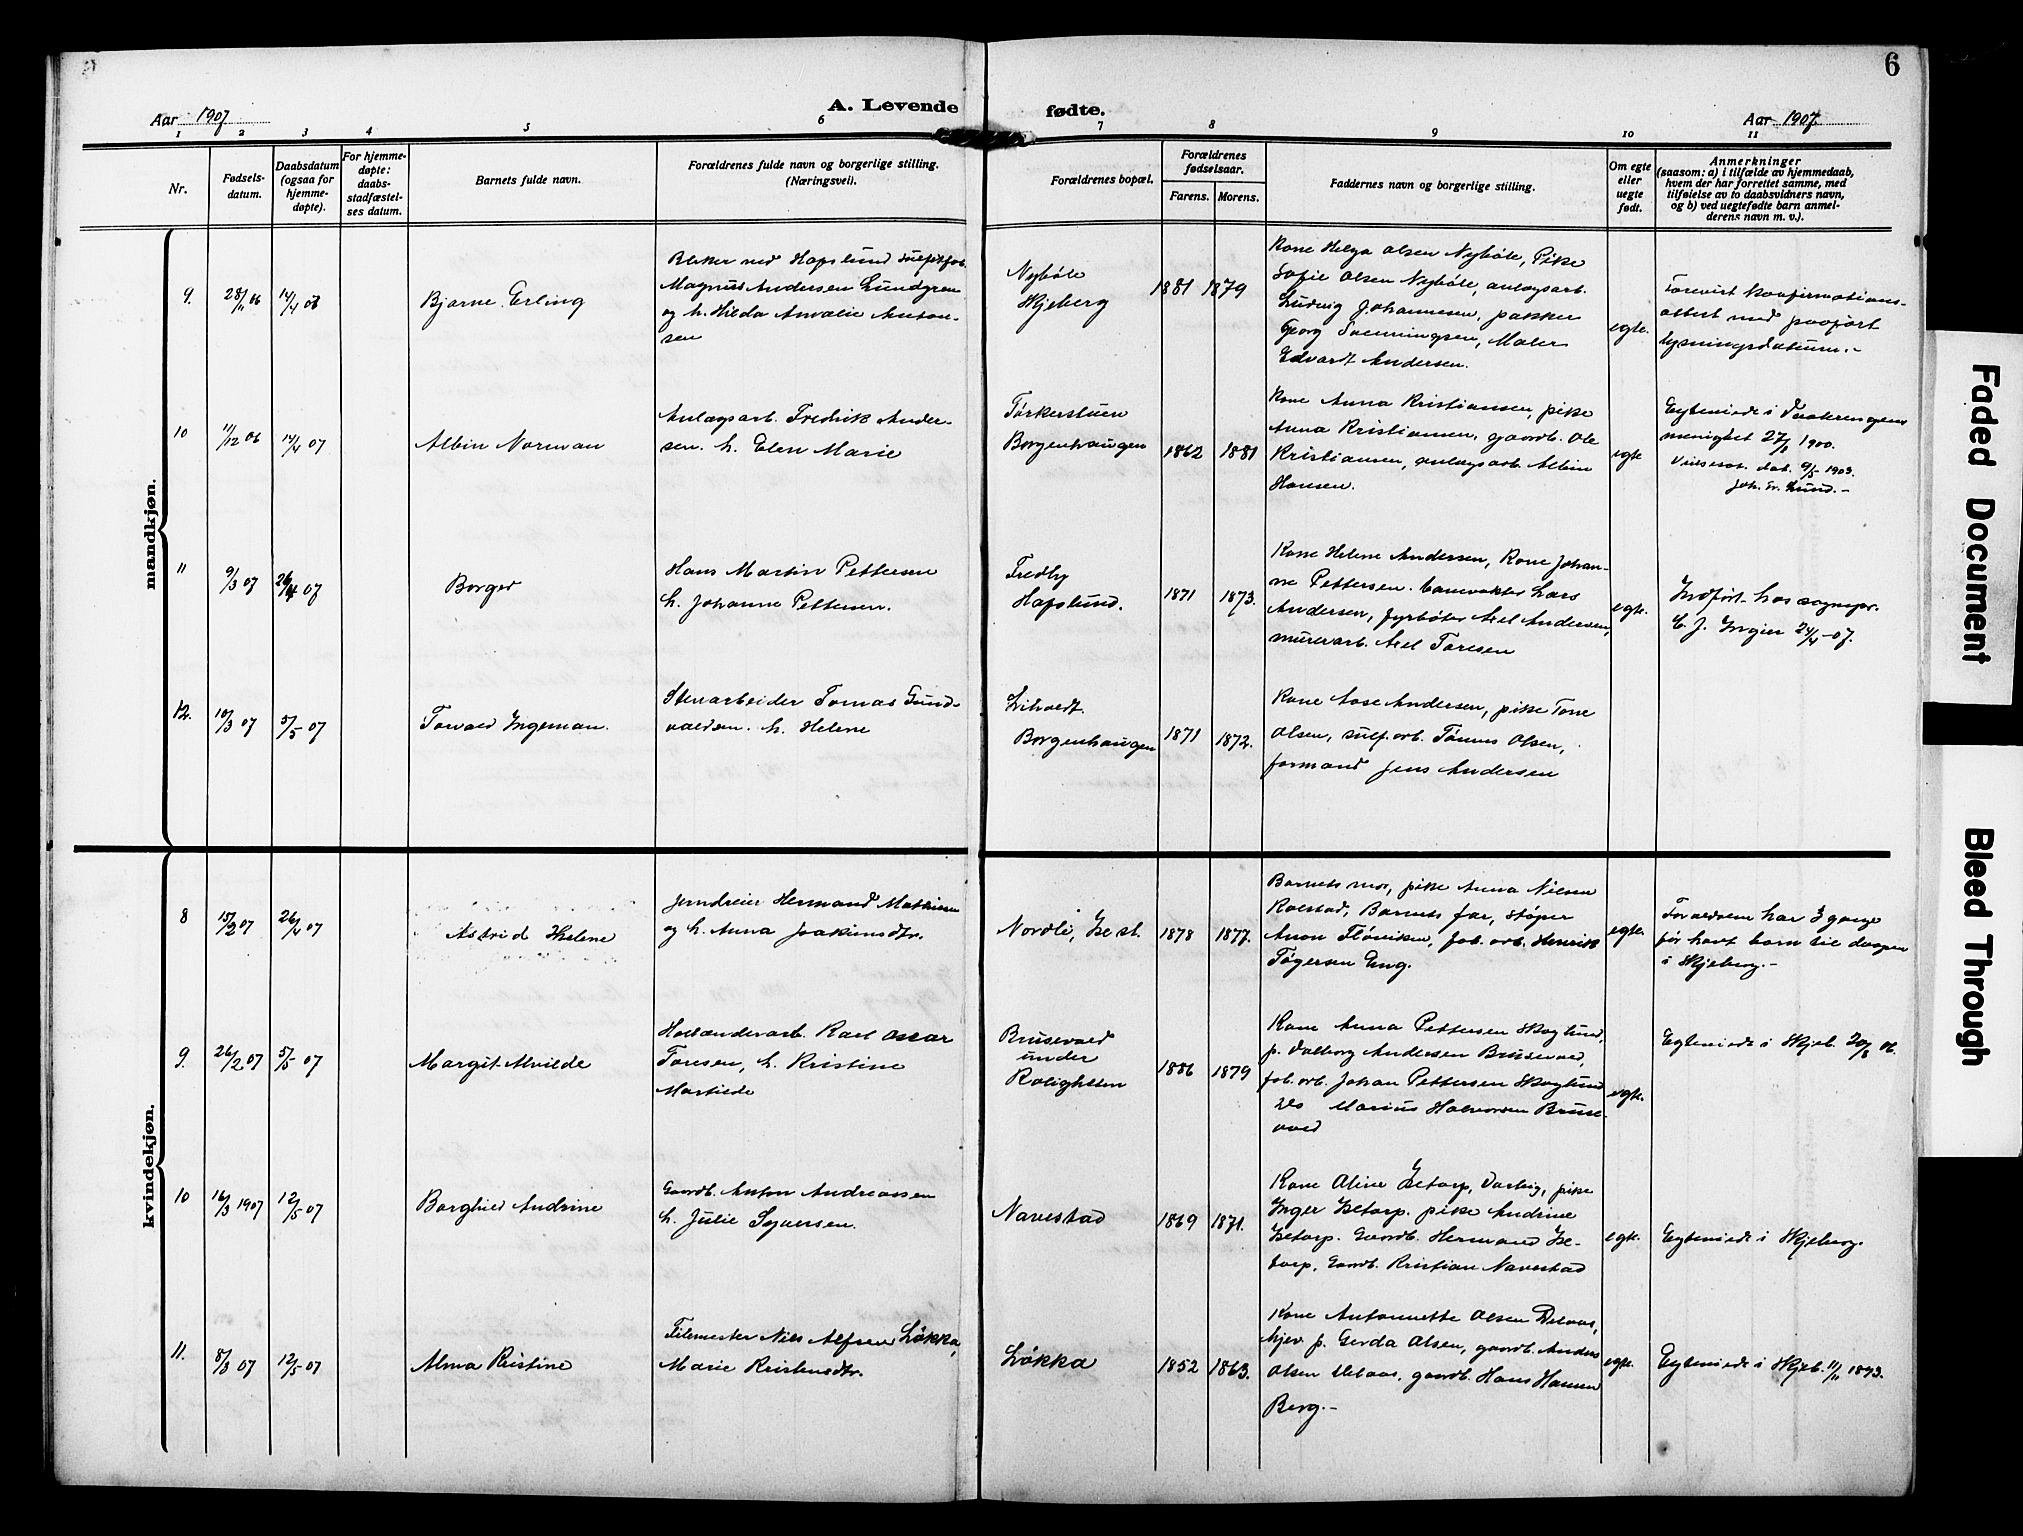 6
Aar 1907
A. Levende
fødte.
Aar 1907
1 2 3 4 5 6 7 8 9 10 11
Nr.
Fødsels-
datum.
Daabsdatum
(ogsaa for
hjemme-
døpte).
For hjemme-
døpte:
daabs-
stadfæstel-
ses datum.
Barnets fulde navn.
Forældrenes fulde navn og borgerlige stilling.
(Næringsvei).
Forældrenes bopæl.
Forældrenes
fødselsaar.
Farens. Morens.
Faddernes navn og borgerlige stilling.
Om egte
eller
uegte
født.
Anmerkninger
(saasom: a) i tilfælde av hjemmedaab,
hvem der har forrettet samme, med
tilføielse av to daabsvidners navn,
og b) ved uegtefødte barn anmel-
derens navn m. v.).
mandkjøn.
9.
28/11 06
14/4 07
Bjarne Erling
Bleker ved Hafslund
Magnus Andersen Lundgren
og h. Hilda Amalie Anton-
sen
Nybøle
Skjeberg
1881 1879
Kone Helga Olsen Nybøle, Pike
Sofie Olsen Nybøle, anlægsarb.
Ludvig Johannesen, pakker
Georg Svenningsen, Maler
Edvart Andersen.
egte.
Forevist konfirmations-
attest med paaført
lysningsdatum.-
10
11/12 06
14/4 07
Albin Norman
Anlægsarb. Fredrik Ander-
sen. h. Elen Marie
Tørkerstuen
Borgenhaugen
1862 1881
Kone Anna Kristiansen, pike
Anna Kristiansen, gaardb. Ole
Kristiansen, anlægsarb. Albin
Hansen.
egte
Egteviede i Vaalerengens
menighet 27/1 1900.
Vielsesat. dat. 9/5 1903.
Joh. Lund.-
11
9/3 07
26/4 07
Borger
Hans Martin Pettersen
h. Johanne Pettersen.
Fredly
Hafslund.
1871 1873.
Kone Helene Andersen, Kone Johan-
ne Pettersen. banevokter Lars
Andersen, fyrbøter Axel Andersen,
murerarb. Axel Toresen
egte.
Indført hos sognepr.
C. J. Ingier 24/4-07.
12.
10/3 07
5/5 07
Torvald Ingeman.
Stenarbeider Tomas Gund-
valdsen. h. Helene
Lihvedt.
Borgenhaugen
1871 1872.
Kone Aase Andersen, pike Tone
Olsen, sulf. arb. Tønnes Olsen,
formand Jens Andersen
kvindekjøn.
8
15/2 07
26/4 07
Astrid Helene
Jerndreier Hermand Mathisen
og h. Anna Joakimsdtr.
Nordli,
1878 1877.
Barnets mor, pike Anna Nilsen
Rolstad, Barnets far, støper
Anon Fløviken, fab. arb. Henrik
Tøgersen Eng.
egte.
Forældrene har 3 gange
før havt barn til daapen
i Skjeberg.-
9.
26/2 07
5/5 07
Margit Alvilde
Hollænderarb. Karl Oscar
Toresen, h. Kristine
Martilde
Brusevold
under
Roligheten
1886 1879
Kone Anna Pettersen Skoglund,
p. Valborg Andersen Brusevold,
fab. arb. Johan Pettersen Skoglund
do Marius Halvorsen Bruse-
vold
egte.
Egteviede i Skjeb. 20/8 06.
10
16/3 1907
12/5 07
Borghild Andrine
Gaardb. Anton Andreassen
h. Julie Syversen.
Navestad
1869 1871.
Kone Aline Isetorp, Varteig, pike
Inger Isetorp. pike Andrine
Isetorp. Gaardb. Hermand Ise-
torp, Gaardb. Kristian Navestad
egte.
Egteviede i Skjeberg.
11.
8/3 07
12/5 07
Alma Kristine
Filemester Nils Alfsen Løkka,
Marie Kristensdtr.
Løkka
1852 1863.
Kone Antonnette Olsen
p. Gerda Olsen, gaardb. Anders
Olsen gaardb. Hans Hansen
Berg.-
egte.
Egteviede i Skjeb. 11/11 1893.
Faded Document
Bleed Through